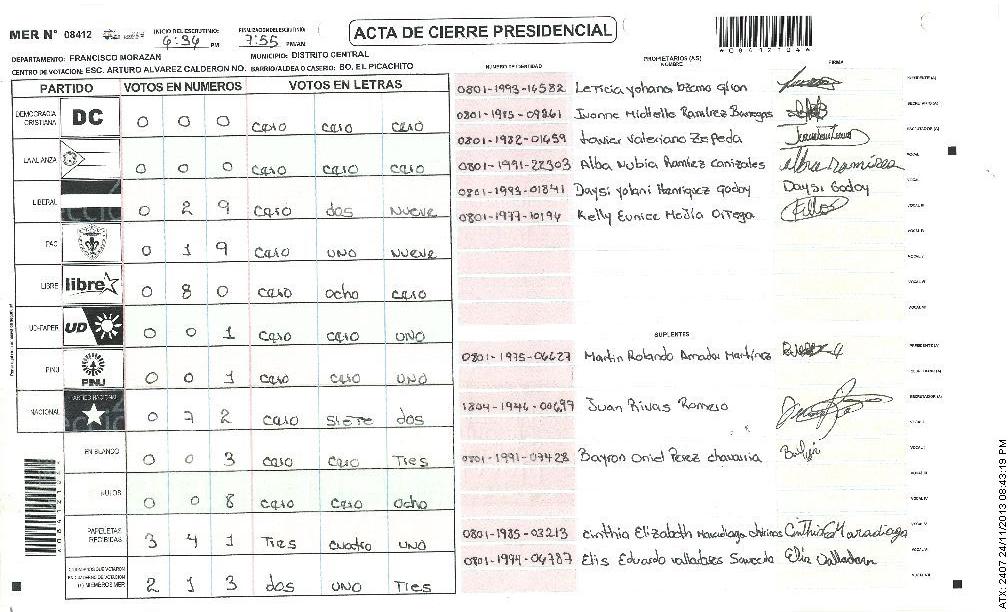 MER N° 08412
INICIO DEL ESCRUTINIO: 6:34 PM
FINALIZACION ESCRUTINIO: 7:55 PM/AM
ACTA DE CIERRE PRESIDENCIAL
08412104
DEPARTAMENTO: FRANCISCO MORAZAN MUNICIPIO: DISTRITO CENTRAL
CENTRO DE VOTACION: ESC. ARTURO ALVAREZ CALDERON NO. BARRIO/ALDEA O CASERIO: BO. EL PICACHITO
PARTIDO VOTOS EN NUMEROS VOTOS EN LETRAS
DEMOCRACIA CRISTIANA DC 0 0 0 cero cero cero
LA ALIANZA 0 0 0 cero cero cero
LIBERAL 0 2 9 cero dos nueve
PAC 0 1 9 cero uno nueve
LIBRE libre 0 8 0 cero ocho cero
UD-FAPER UD 0 0 1 cero cero uno
PINU PINU 0 0 1 cero cero uno
NACIONAL 0 7 2 cero siete dos
EN BLANCO 0 0 3 cero cero Tres
NULOS 0 0 8 cero cero ocho
PAPELETAS RECIBIDAS 3 4 1 Tres cuatro uno
CIUDADANOS QUE VOTARON EN CUADERNO DE VOTACION (+) MIEMBROS MER 2 1 3 dos uno Tres
PROPIETARIOS (AS)
NUMERO DE IDENTIDAD NOMBRE FIRMA
0801-1993-16582 Leticia yohana
PRESIDENTE (A)
0801-1985-09261 Ivonne Michelle Ramirez
SECRETARIO (A)
0801-1982-01659 Javier Valeriano Zepeda
ESCRUTADOR (A)
0801-1991-22303 Alba Nubia Ramirez Canizales Alba Ramirez
VOCAL I
0801-1993-01841 Daysi yolani Henriquez Godoy Daysi Godoy
0801-1977-10194 Kelly Eunice Mejia Ortega
SUPLENTES
0801-1975-06627 Martin Rolando Amador Martinez
PRESIDENTE (A)
SECRETARIO (A)
1804-1946-00697 Juan Rivas Romero
ESCRUTADOR (A)
0801-1991-07428 Bayron Oniel Perez chavarria
0801-1985-03213 cinthia Elizabeth Maradiaga Cinthia Maradiaga
0801-1994-06787 Elis Eduardo valladares Elis Valladares
ATX: 2407 24/11/2013 08:43:19 PM